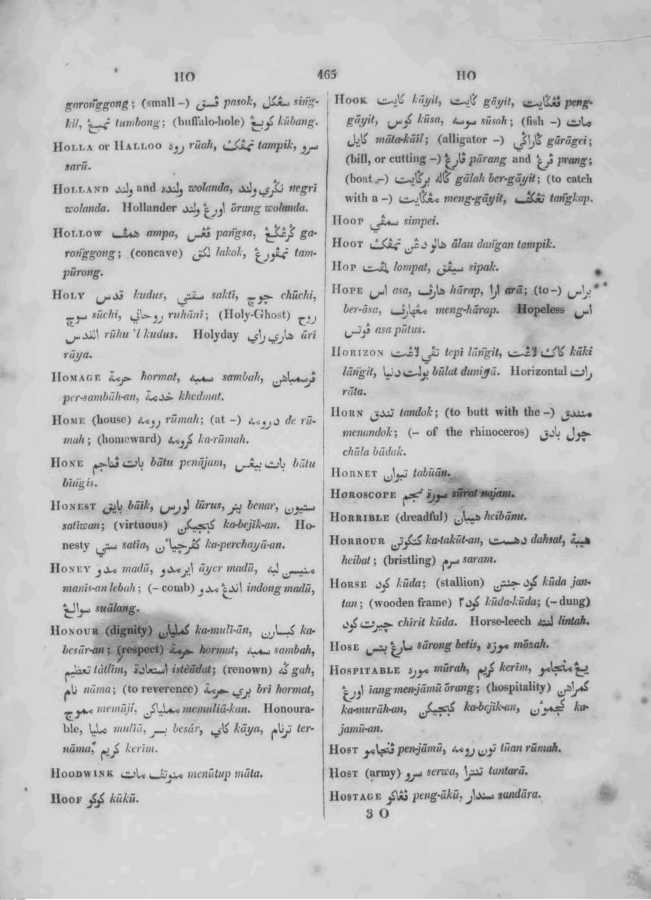 HO 465 HO
goronggong; (small –) ڤسق pasok, سڠكل sing-
kil, تمبڠ tumbong; (buffalo-hole) كوبڠ kūbang.
HOLLA or HALLOO روه rūah, تمڤيک tampik, سرو
sarū.
HOLLAND ولند and ولنده wolanda, نڬري ولند negri
wolanda. Hollander اورڠ ولند ōrang wolanda.
HOLLOW همڤ ampa, ڤڠس pangsa, ڬرڠڬڠ ga-
ronggong; (concave) لكق lakok, تمڤورڠ tam-
pūrong.
HOLY قدس kudus, سقتي sakti, چوچ chūchi,
سوچ sūchi, روحاني ruhānī; (Holy-Ghost) روح
القدس rūhu 'l kudus. Holyday هاري راي āri
rāya.
HOMAGE حرمة hormat, سمبه sambah, ڤرسمباهن
per-sambāh-an, خدمة khedmat.
HOME (house) رومه rūmah; (at –) درومه de rū-
mah; (homeward) كرومه ka-rūmah.
HONE بات ڤناجم bātu penājam, بات بيڠس bātu
bīngis.
HONEST بايق bāik, لورس lūrus, بنر benar, ستيون
satīwan; (virtuous) كبجيكن ka-bejik-an. Ho-
nesty ستي satīa, كڤرچيأن ka-perchayā-an.
HONEY مدو madū, اير مدو āyer madū, منيسن لبه
manīs-an lebah; (– comb) اندڠ مدو indong madū,
سوالڠ suālang.
HONOUR (dignity) كمليان ka-mulī-ān, كبسارن ka-
besār-an; (respect) حرمة hormat, سمبه sambah,
تعظيم tātlīm, استعادة istēādat; (renown) ڬه gah,
نام nāma; (to reverence) بري حرمة bri hormat,
مموج memūji, مملياكن memuliā-kan. Honoura-
ble, مليا muliā, بسر besār, كاي kāya, ترنام ter-
nāma, كريم kerīm.
HOODWINK منوتڤ مات menūtup māta.
HOOF كوكو kūkū.
HOOK كايت kāyit, ڬايت gāyit, ڤڠڬايت peng-
gāyit, كوس kūsa, سوسه sūsoh; (fish –) مات
كايل māta-kāil; (alligator –) ڬاراڬي gārāgei;
(bill, or cutting –) ڤارڠ pārang and ڤرڠ prang;
(boat –) ڬاله برڬايت gālah ber-gāyit; (to catch
with a –) مڠڬايت meng-gāyit, تڠكڤ tangkap.
HOOP سمڤي simpei.
HOOT هالو دڠن تمڤيک ālau dangan tampik.
HOP لمڤت lompat, سيڤق sipak.
HOPE اس asa, هارڤ hārap, ارا arā; (to –) براس
ber-āsa, مڠهارڤ meng-hārap. Hopeless اس
ڤوتس asa pūtus.
HORIZON تڤي لاڠت tepi lāngit, كاك لاڠت kāki
lāngit, بولت دنيا būlat duniyā. Horizontal رات
rāta.
HORN تندق tandok; (to butt with the –) منندق
menandok; (– of the rhinoceros) چول بادق
chūla bādak.
HORNET تبوان tabūān.
HOROSCOPE سورة نجم sūrat najam.
HORRIBLE (dreadful) هيبان heibānu.
HORROUR كتكوتن ka-takūt-an, دهست dahsat, هيبة
heibat; (bristling) سرم saram.
HORSE كود kūda; (stallion) كود جنتن kūda jan-
tan; (wooden frame) كود٢ kūda-kūda; (– dung)
چيرت كود chirit kūda. Horse-leech لنته lintah.
HOSE سارڠ بتس sārong betis, موزه mūzah.
HOSPITABLE موره mūrah, كريم kerīm, يڠ منجامو
اورڠ iang men-jāmū ōrang; (hospitality) كمراهن
ka-murāh-an, كبجيكن ka-bejik-an, كجموٴن ka-
jamū-an.
HOST ڤنجامو pen-jāmū, تون رومه tūan rūmah.
HOST (army) سرو serwa, تنترا tantarā.
HOSTAGE ڤڠاكو peng-ākū, سندار sandāra.
3 O